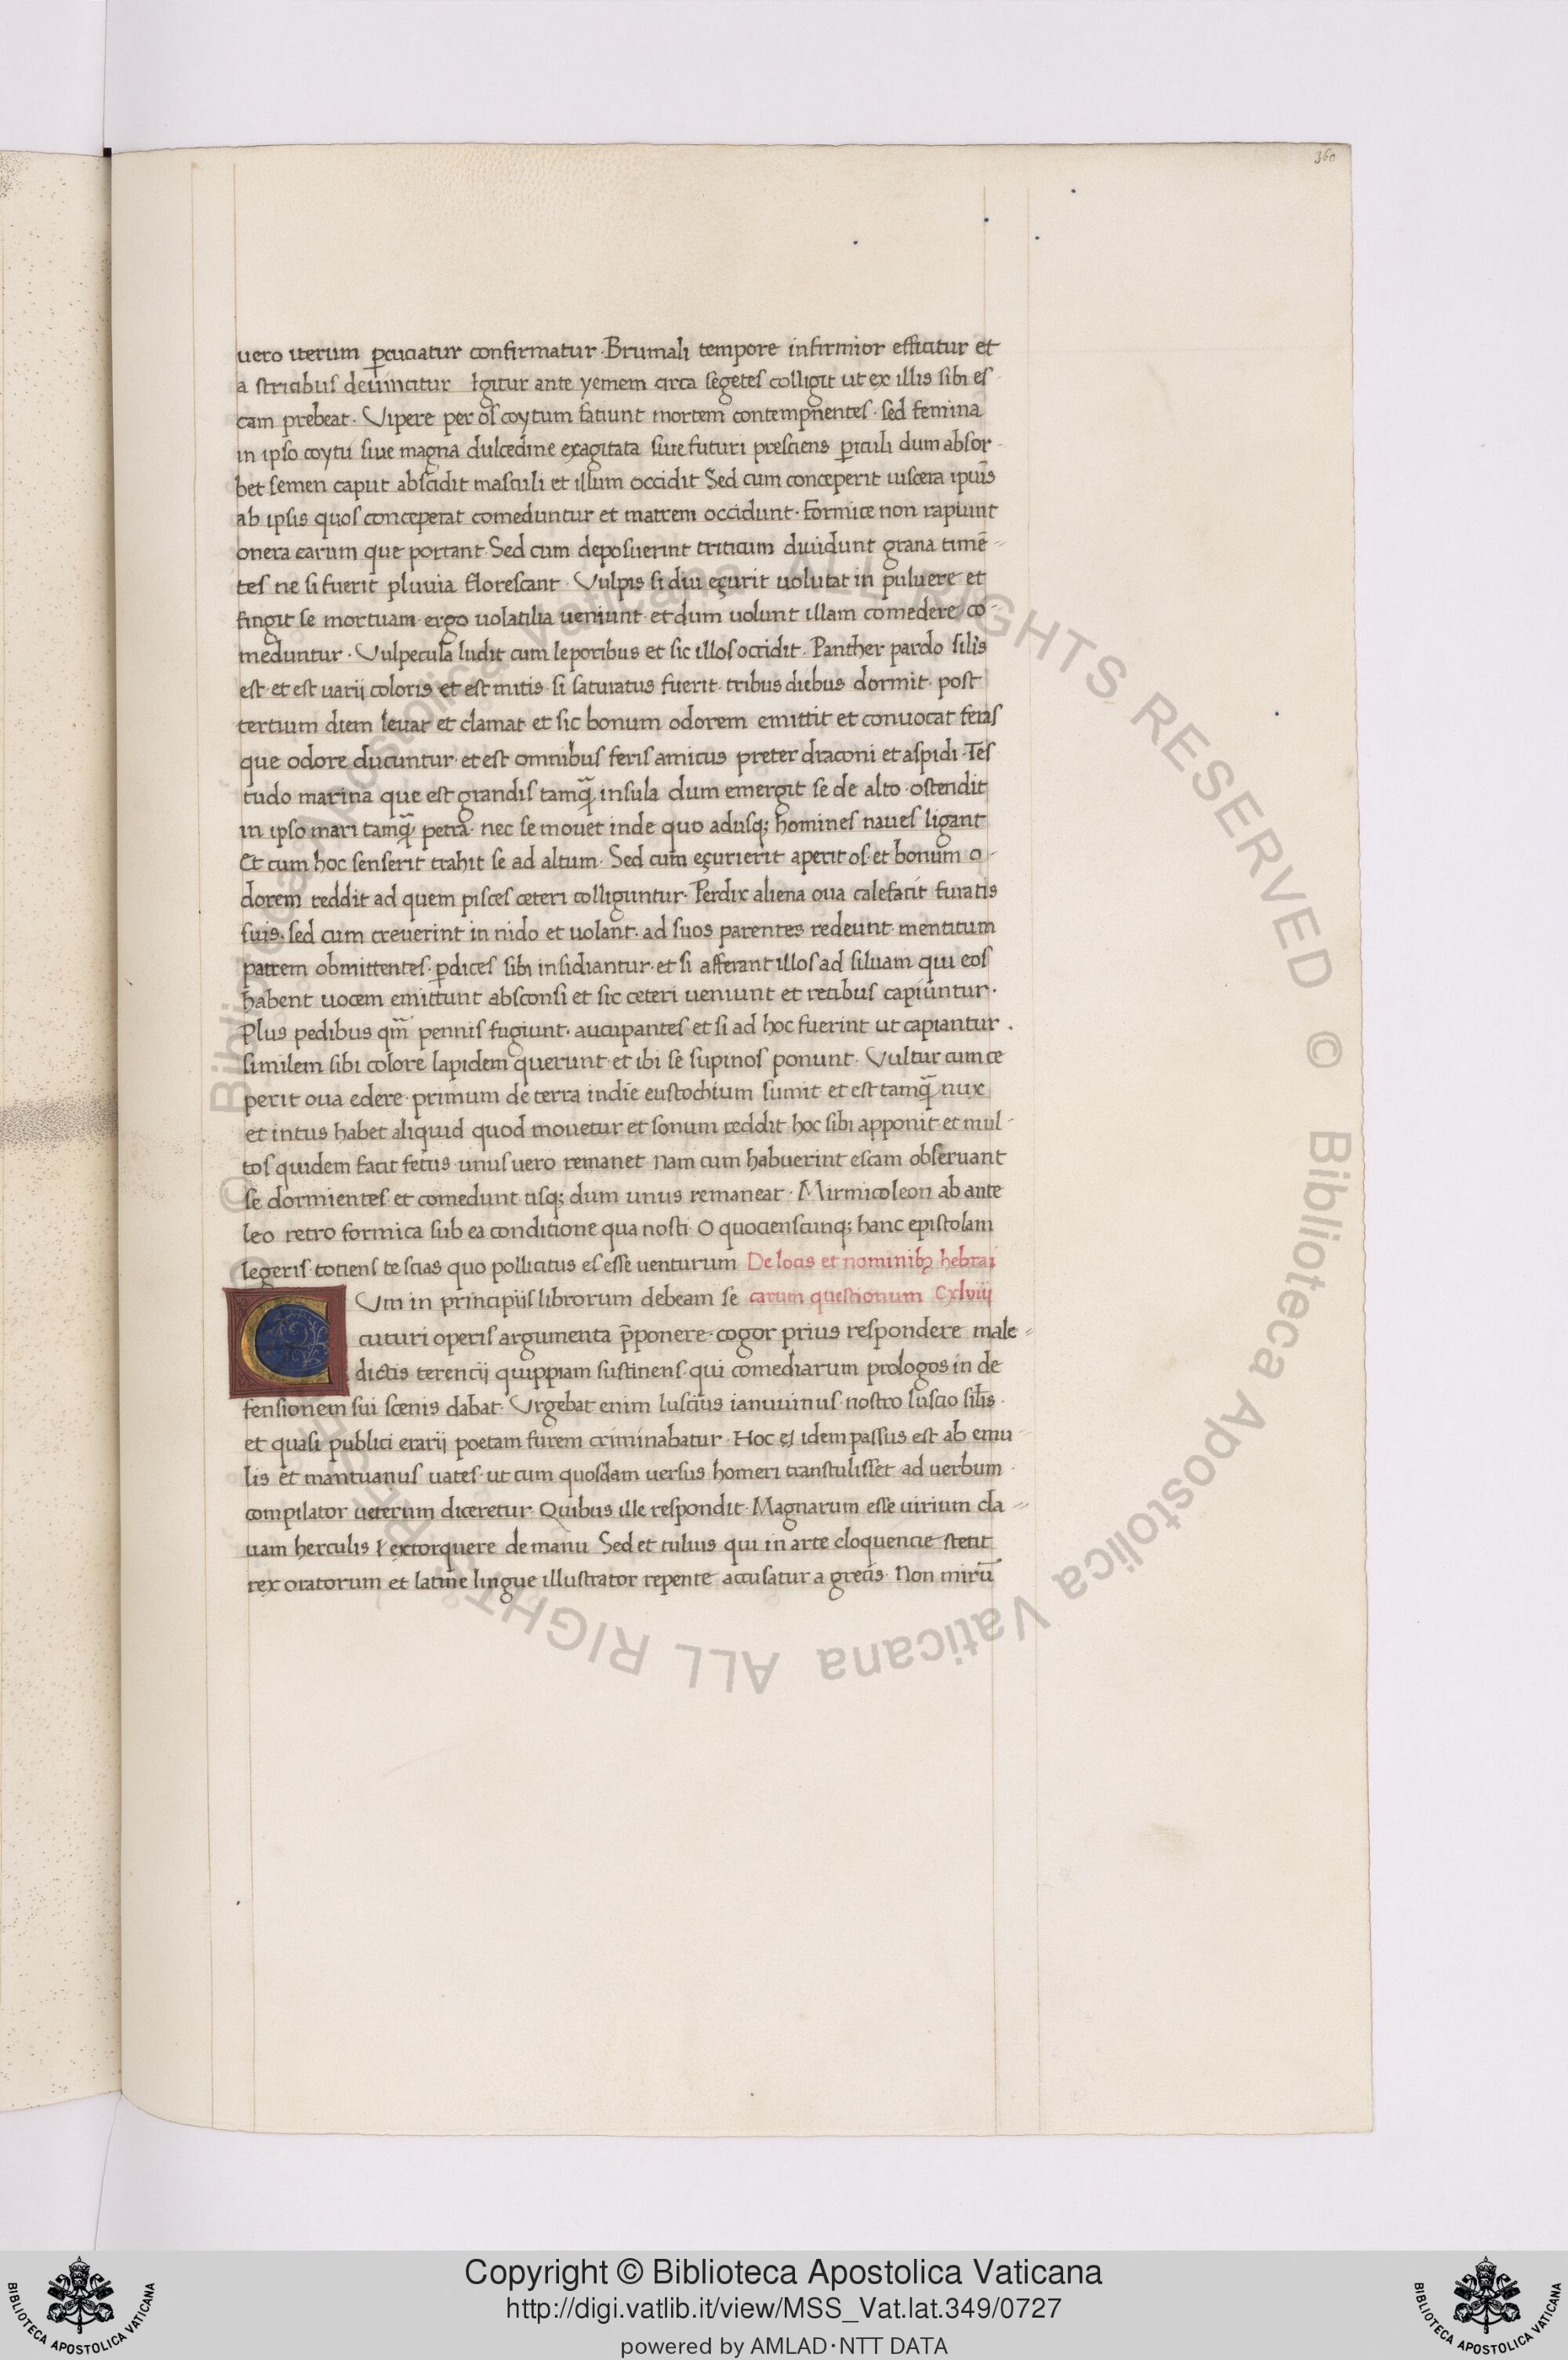 360
uero iterum ꝑcuciatur confirmatur · Brumali tempore infirmior efficitur et
a stricibus deuincitur Igitur ante yemem circa segetes colligit ut ex illis sibi es
cam prebeat · Vipere per os coytum fatiunt mortem contempnentes · sed femina
in ipso coytu siue magna dulcedine exagitata siue futuri presciens ꝑiculi dum absor-
bet semen caput abscidit masculi et illum occidit Sed cum conceperit uiscera ipius
ab ipsis quos conceperat comeduntur et matrem occidunt · Formice non rapiunt
onera earum que portant · Sed cum deposuerint triticum diuidunt grana timē-
tes ne si fuerit pluuia florescant · Vulpis si diu eçurit uolutat in puluere et
fingit se mortuam · ergo uolatilia ueniunt · et dum uolunt illam comedere co-
meduntur · Vulpecula ludit cum leporibus et sic illos occidit · Panther pardo silis
est · et est uarij coloris et est mitis · si saturatus fuerit · tribus diebus dormit · post
tertium diem leuat et clamat et sic bonum odorem emittit et conuocat feras
que odore ducuntur · et est omnibus feris amicus preter draconi et aspidi · Tes
tudo marina que est grandis tamq̄ insula dum emergit se de alto · ostendit
in ipso mari tamq̄ petra · nec se mouet inde quo adusq; homines naues ligant
Et cum hoc senserit trahit se ad altum · Sed cum eçurierit aperit os · et bonum o-
dorem reddit ad quem pisces ceteri colliguntur · Perdix aliena oua calefacit furatis
suis · sed cum creuerint in nido et uolant · ad suos parentes redeunt · mentitum
patrem obmittentes · ꝑdices sibi insidiantur · et si afferant illos ad siluam qui eos
habent uocem emittunt absconsi et sic ceteri ueniunt et retibus capiuntur ·
Plus pedibus qm̄ pennis fugiunt · aucupantes et si ad hoc fuerint ut capiantur ·
similem sibi colore lapidem querunt · et ibi se supinos ponunt · Vultur cum ce
perit oua edere · primum de terra indie eustochium sumit et est tamq̄ nux
et intus habet aliquid quod mouetur et sonum reddit hoc sibi apponit · et mul-
tos quidem facit fetus · unus uero remanet · nam cum habuerint escam obseruant
se dormientes · et comedunt usq; dum unus remaneat · Mirmicoleon ab ante
leo retro formica sub ea conditione qua nosti · O quocienscunq; hanc epistolam
legeris · totiens te scias quo pollicitus es esse uenturum De locis et nominibꝫ hebrai
CVm in principiis librorum debeam se carum questionum Cxlviij
cuturi operis argumenta p̄ponere · cogor prius respondere male-
dictis terencij quippiam sustinens · qui comediarum prologos in de
fensionem sui scenis dabat · Vrgebat enim luscius ianuuinus · nostro luscio silis ·
et quasi publici erarij poetam furem criminabatur · Hoc idem passus est ab emu-
lis et mantuanus uates · ut cum quosdam uersus homeri transtulisset ad uerbum ·
compilator ueterum diceretur · Quibus ille respondit · Magnarum esse uirium cla-
uam herculis extorquere de manu Sed et tulius qui in arte eloquencie stetit
rex oratorum et latine lingue illustrator repente accusatur a grecis · Non mirū
© Biblioteca Apostolica Vaticana ALL RIGHTS RESERVED © Biblioteca Apostolica Vaticana ALL RIGHTS RESERVED
Copyright © Biblioteca Apostolica Vaticana
http://digi.vatlib.it/view/MSS_Vat.lat.349/0727
powered by AMLAD·NTT DATA
BIBLIOTECA APOSTOLICA VATICANA
BIBLIOTECA APOSTOLICA VATICANA